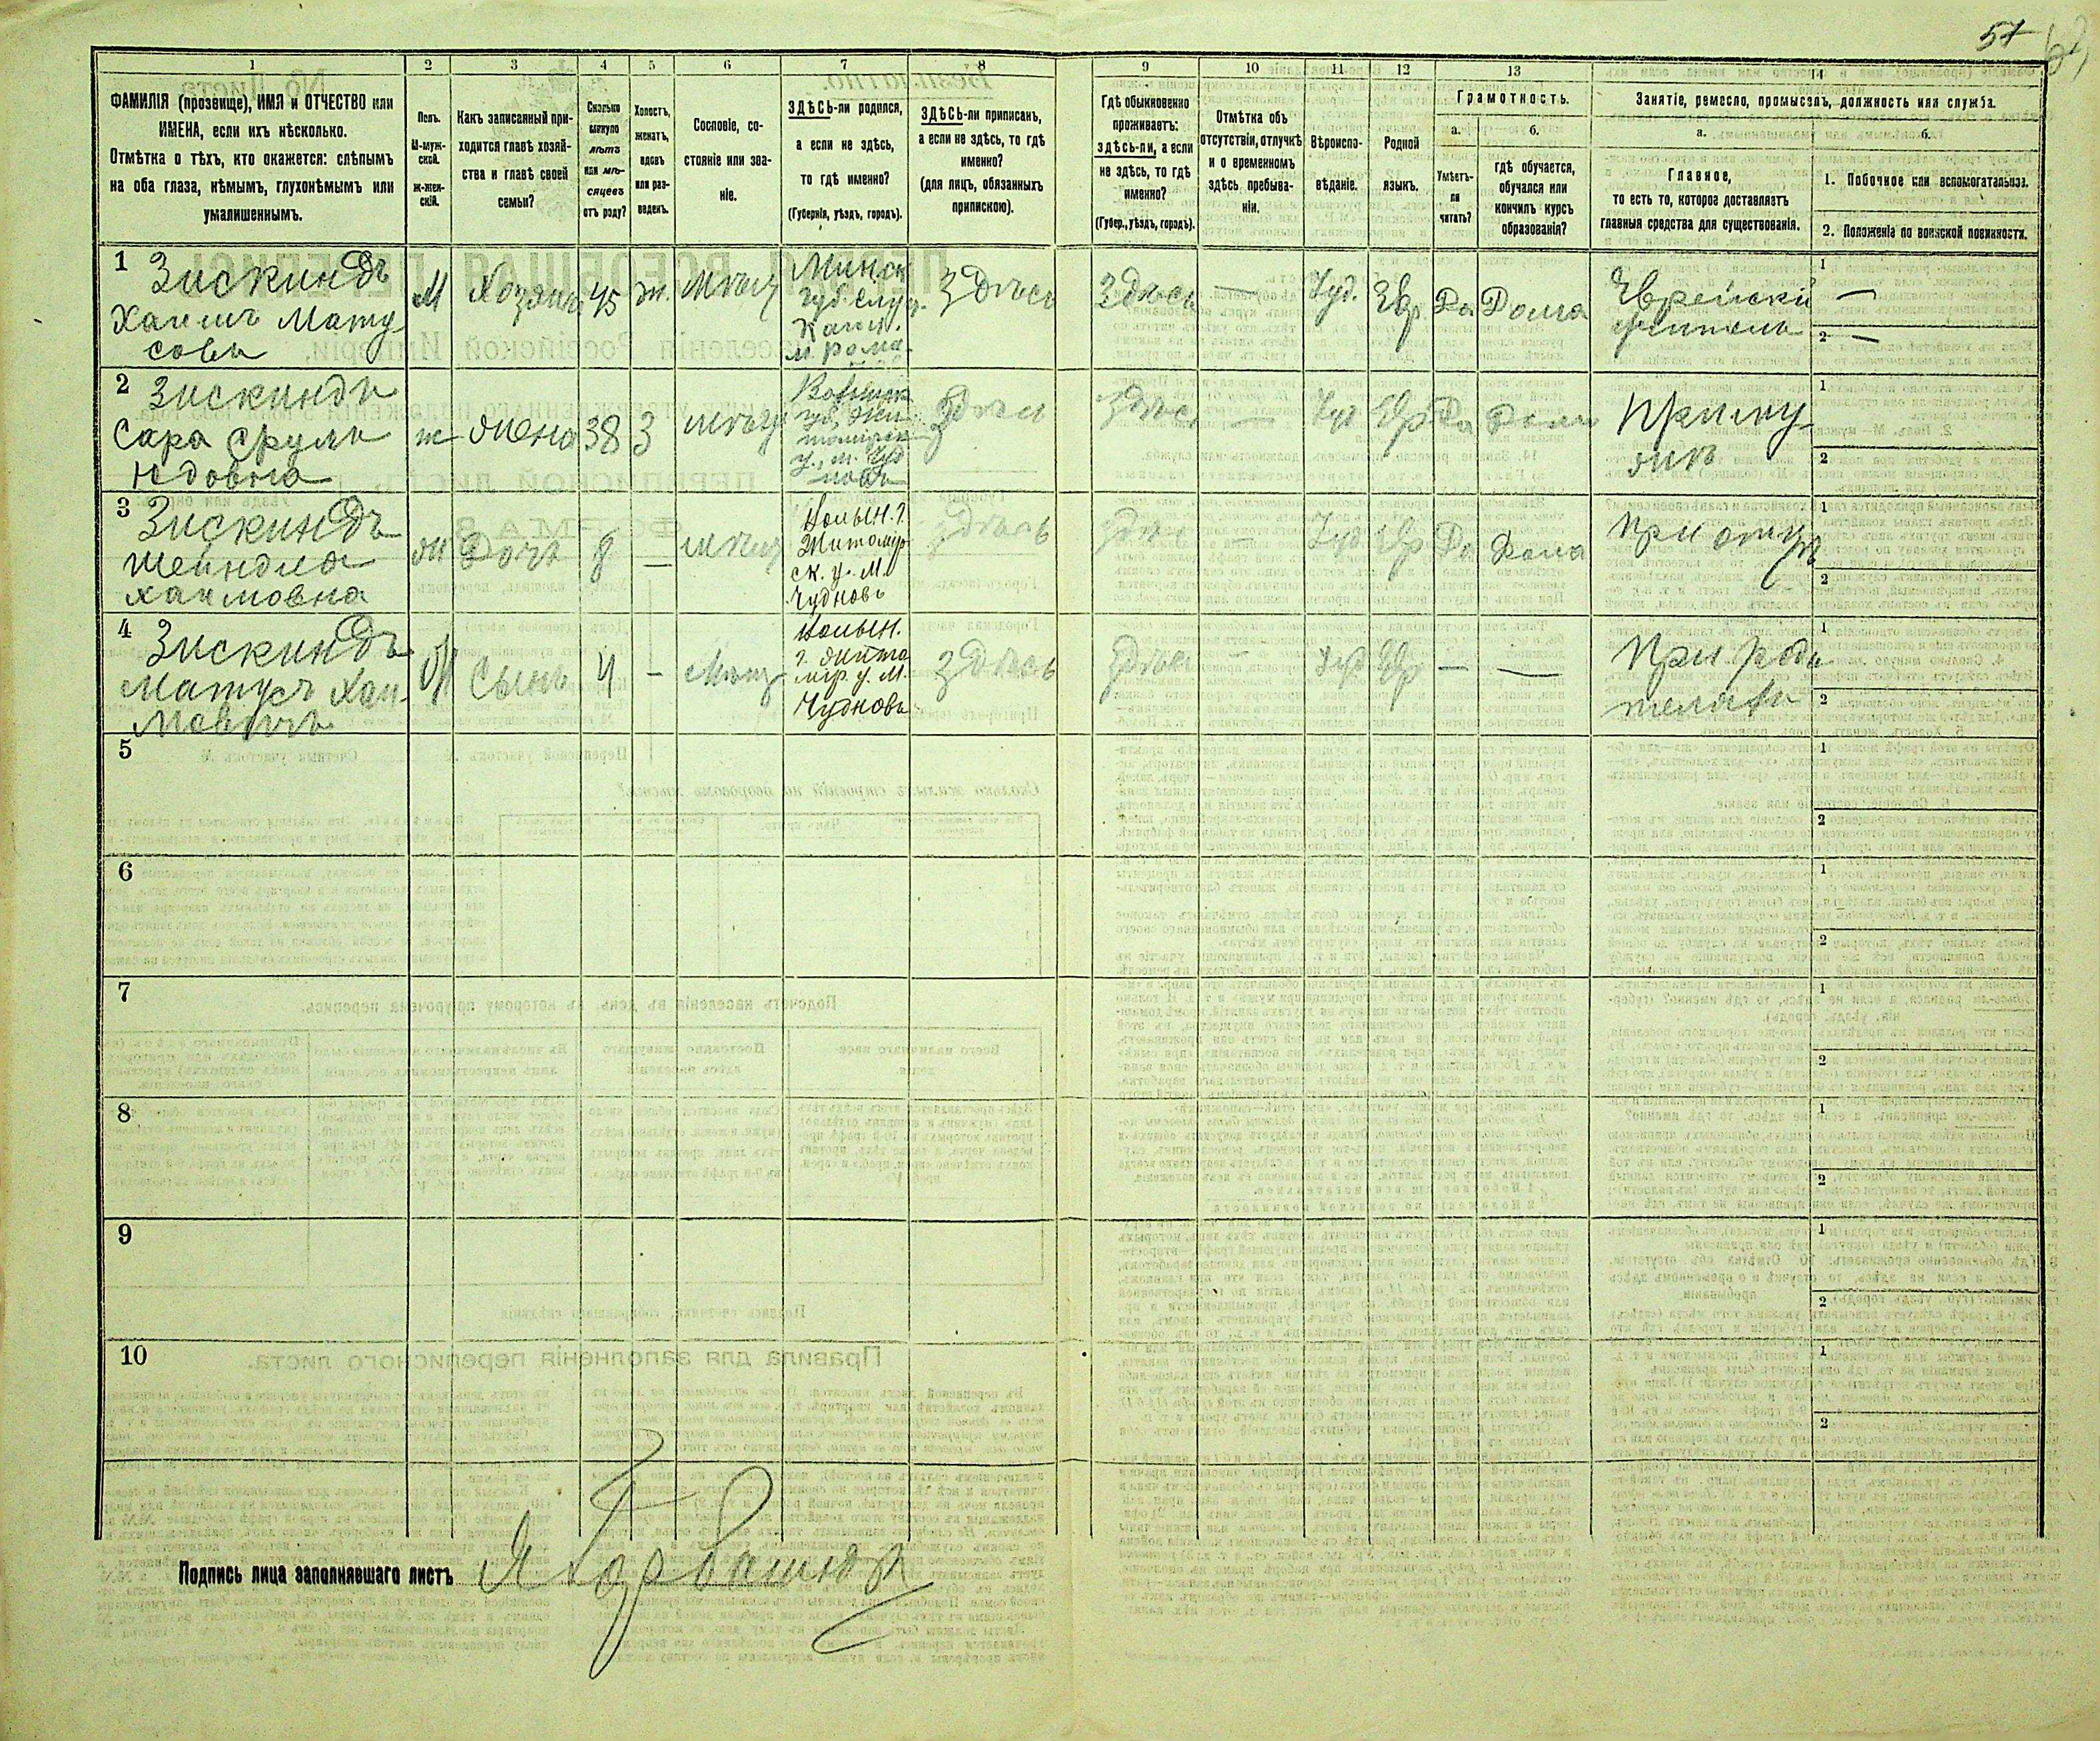 57
1 2 3 4 5 6 7 8 9 10 11 12 13 14
ФАМИЛІЯ (прозвище), ИМЯ и ОТЧЕСТВО или
ИМЕНА, если ихъ нѣсколько.
Отмѣтка о тѣхъ, кто окажется: слѣпымъ
на оба глаза, нѣмымъ, глухонѣмымъ или
умалишеннымъ.
Полъ.
М-муж-
ской.
ж-жен-
скій.
Какъ записанный при-
ходится главѣ хозяй-
ства и главѣ своей
семьи?
Сколько
минуло
лѣтъ
или мѣ-
сяцевъ
отъ роду?
Холостъ,
женатъ,
вдовъ
или раз-
веденъ.
Сословіе, со-
стояніе или зва-
ніе.
ЗДѢСЬ-ли родился,
а если не здѣсь,
то гдѣ именно?
(Губернія, уѣздъ, городъ).
ЗДѢСЬ-ли приписанъ,
а если не здѣсь, то гдѣ
именно?
(для лицъ, обязанныхъ
припискою).
Гдѣ обыкновенно
проживаетъ:
здѣсь-ли, а если
не здѣсь, то гдѣ
именно?
(Губер., уѣздъ, городъ).
Отмѣтка объ
отсутствіи, отлучкѣ
и о временномъ
здѣсь пребыва-
ніи.
Вѣроиспо-
вѣданіе.
Родной
языкъ.
Грамотность.
а.
Умѣетъ-
ли
читать?
б.
гдѣ обучается,
обучался или
кончилъ курсъ
образованія?
Занятіе, ремесло, промыселъ, должность или служба.
а.
Главное,
то есть то, которое доставляетъ
главныя средства для существованія.
б.
1. Побочное или вспомогательное.
2. Положеніе по воинской повинности.
1 Зискиндъ
Хаимъ Мату
совъ
М
Хозяинъ
45
ж.
Мѣщ
Минск
губ. Слуц.
м. Рома
Здѣсь
Здѣсь
—
Іуд.
Евр
Да
Дома
Еврейскій
учитель
1 —
2 —
2 Зискиндъ
Сара Сруль
Юдовна
ж
жена
38
З
мѣщ
Волынск
губ. Жи
томирск
у., м. Чуд
новъ
Здѣсь
Здѣсь
—
Іуд
Евр
Да
Дома
При му
жѣ
1
2
3 Зискиндъ
Шейндля
Хаимовна
ж
Дочь
8
—
мѣщ
Волын. г.
Житомир
ск. у. М.
Чудновъ
Здѣсь
Здѣсь
—
Іуд
Евр
Да
Дома
При отцѣ
1
2
4 Зискиндъ
Матусъ Хаи
мовичъ
М
Сынъ
4
—
Мѣщ
Волын.
г. Жито
мир. у. М.
Чудновъ
Здѣсь
Здѣсь
—
Іуд
Евр
—
—
При роди
теляхъ
1
2
5
1
2
6
1
2
7
1
2
8
1
2
9
1
2
10
1
2
Подпись лица заполнявшаго листъ